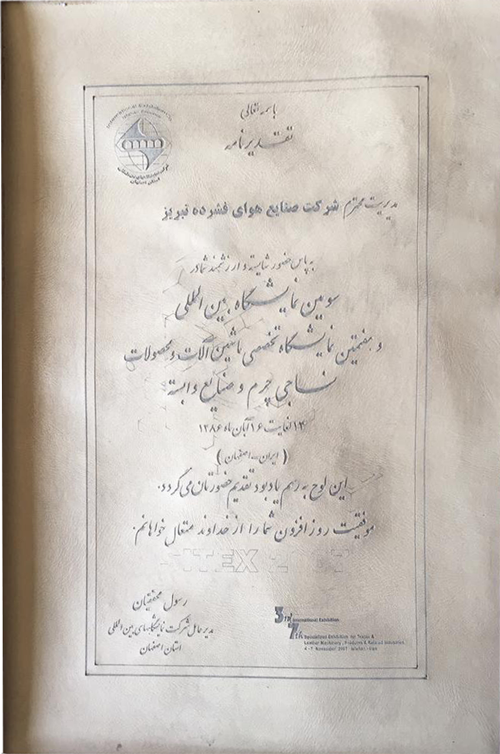 باسمه تعالی
تقدیرنامه
مدیریت محترم شرکت صنایع هوای فشرده تبریز
به پاس حضور شایسته و ارزشمند شما در
سومین نمایشگاه بین المللی
و هفتمین نمایشگاه تخصصی ماشین آلات و محصولات
نساجی چرم و صنایع وابسته
۱۳ لغایت ۱۶ آبان ماه ۱۳۸۶
( ایران - اصفهان )
این لوح به رسم یادبود تقدیم حضورتان می گردد.
موفقیت روز افزون شما را از خداوند متعال خواهانم.
رسول محققیان
مدیرعامل شرکت نمایشگاههای بین المللی
استان اصفهان
3rd International Exhibition
7th Specialized Exhibition for Textile &
Leather Machinery, Products & Related Industries
4-7 November 2007 Isfahan-Iran